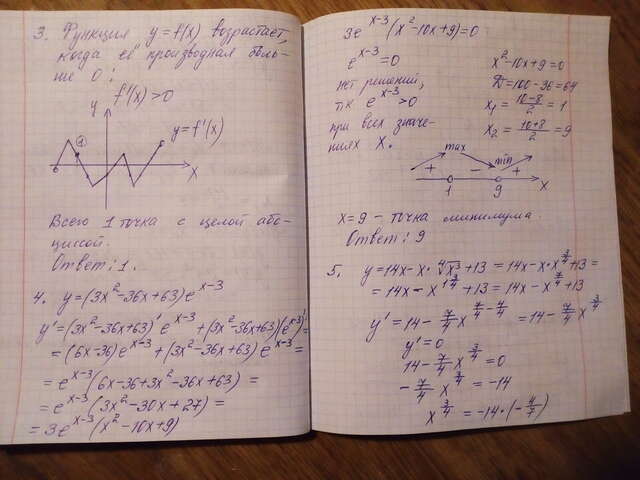 3. Функция y=f(x) возрастает,
когда её производная боль-
ше 0:
f'(x)>0
y
①
y=f'(x)
x
Всего 1 точка с целой абс-
циссой.
Ответ: 1.
4. y=(3x²-36x+63)e^{x-3}
y'=(3x²-36x+63)'e^{x-3}+(3x²-36x+63)(e^{x-3})'=
=(6x-36)e^{x-3}+(3x²-36x+63)e^{x-3}=
=e^{x-3}(6x-36+3x²-36x+63)=
=e^{x-3}(3x²-30x+27)=
=3e^{x-3}(x²-10x+9)
3e^{x-3}(x²-10x+9)=0
e^{x-3}=0
нет решений,
т.к e^{x-3}>0
при всех значе-
ниях x.
x²-10x+9=0
D=100-36=64
x₁=\frac{10-8}{2}=1
x₂=\frac{10+8}{2}=9
max min
+ - +
1 9 x
x=9 - точка минимума.
Ответ: 9
5. y=14x-x·\sqrt[4]{x³}+13=14x-x·x^{\frac{3}{4}}+13=
=14x-x^{1\frac{3}{4}}+13=14x-x^{\frac{7}{4}}+13
y'=14-\frac{7}{4}x^{\frac{7}{4}-\frac{4}{4}}=14-\frac{7}{4}x^{\frac{3}{4}}
y'=0
14-\frac{7}{4}x^{\frac{3}{4}}=0
-\frac{7}{4}x^{\frac{3}{4}}=-14
x^{\frac{3}{4}}=-14·(-\frac{4}{7})